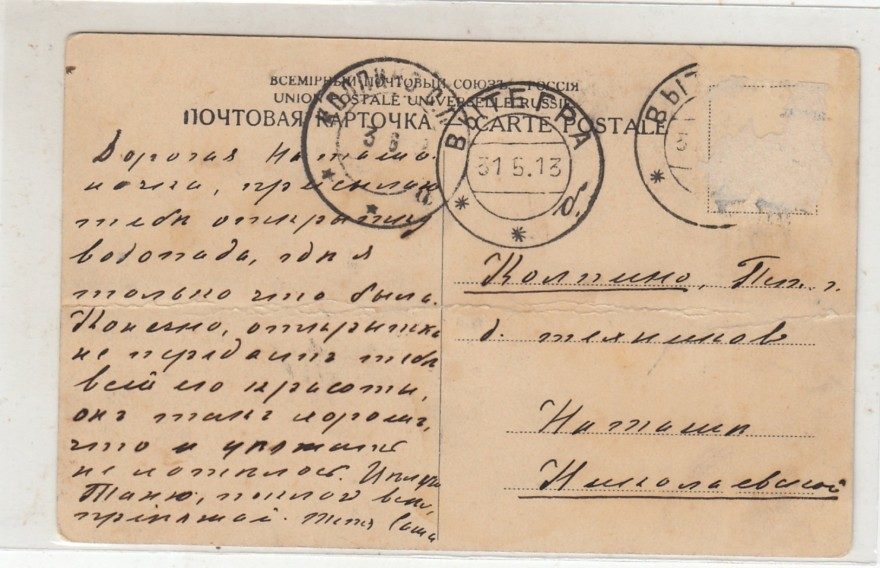 ВСЕМІРНЫЙ ПОЧТОВЫЙ СОЮЗЪ. РОССІЯ
UNION POSTALE UNIVERSELLE. RUSSIE
ПОЧТОВАЯ КАРТОЧКА — CARTE POSTALE
ВЫТЕГРА
31.5.13
б.
ВЫТ
Дорогая Наташа.
посылаю
тебѣ открытку
водопада, гдѣ я
только что была.
Конечно, открытка
не передаетъ тебѣ
всей его красоты,
онъ такъ хорошъ,
что и уѣзжать
не хотѣлось.
Таню, поклон всѣмъ,
Тетя Саша
Колпино, Пт. г.
д. техниковъ
Наташѣ
Николаевской